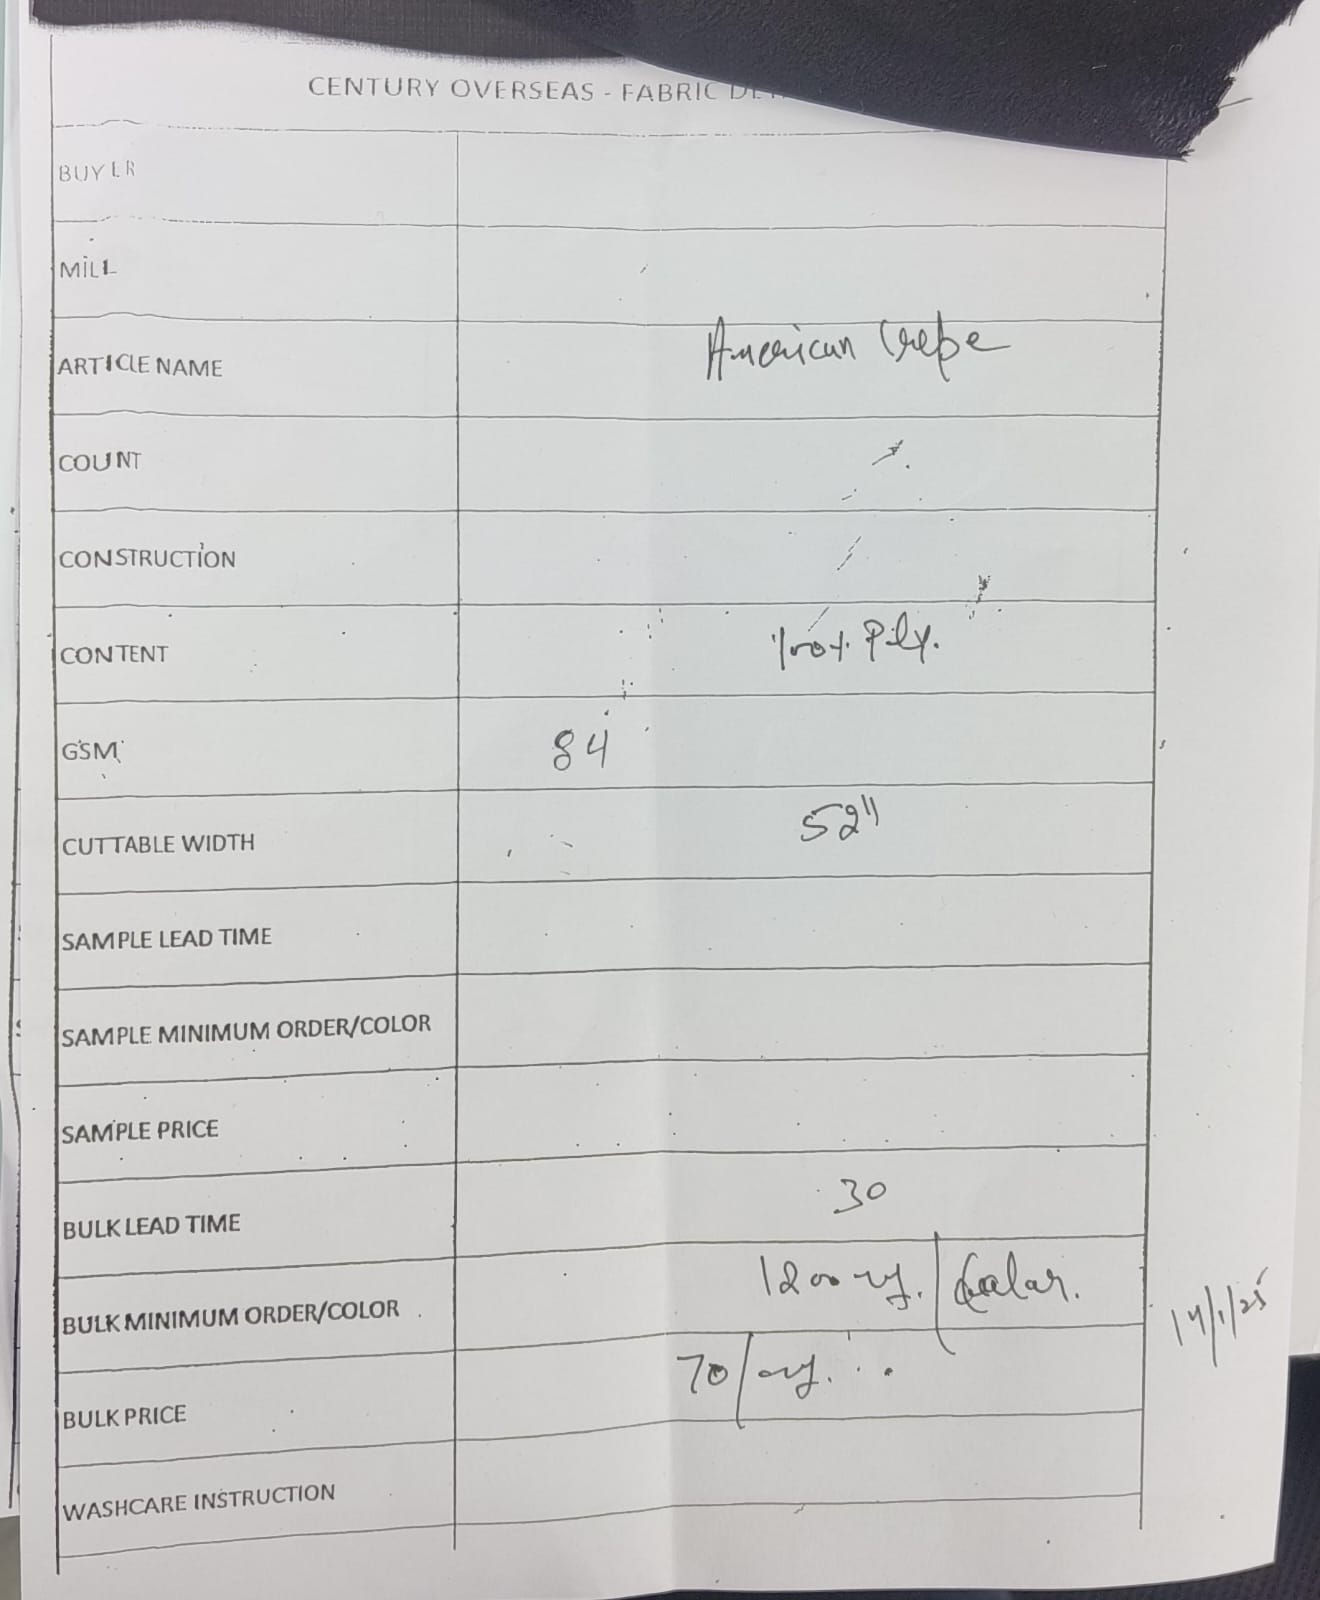 CENTURY OVERSEAS - FABRIC
BUYER
MILL
ARTICLE NAME American Crepe
COUNT
CONSTRUCTION
CONTENT 100% Poly.
GSM 84
CUTTABLE WIDTH 52"
SAMPLE LEAD TIME
SAMPLE MINIMUM ORDER/COLOR
SAMPLE PRICE
BULK LEAD TIME 30
BULK MINIMUM ORDER/COLOR 1200
14/1/25
BULK PRICE 70/
WASHCARE INSTRUCTION